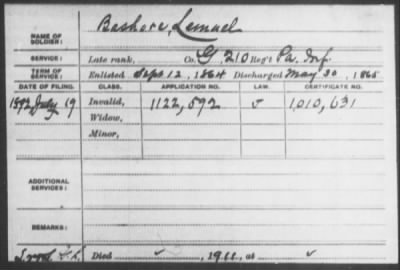 NAME OF SOLDIER: Bashore, Lemuel
SERVICE: Late rank, Co. G, 210 Reg't Pa. Inf.
TERM OF SERVICE: Enlisted Sept. 12, 1864 Discharged May 30, 1865
DATE OF FILING. CLASS. APPLICATION NO. LAW. CERTIFICATE NO.
1892 July 19 Invalid, 1122,592 1,010,631
Widow,
Minor,
ADDITIONAL SERVICES:
REMARKS:
Died , 1911, at